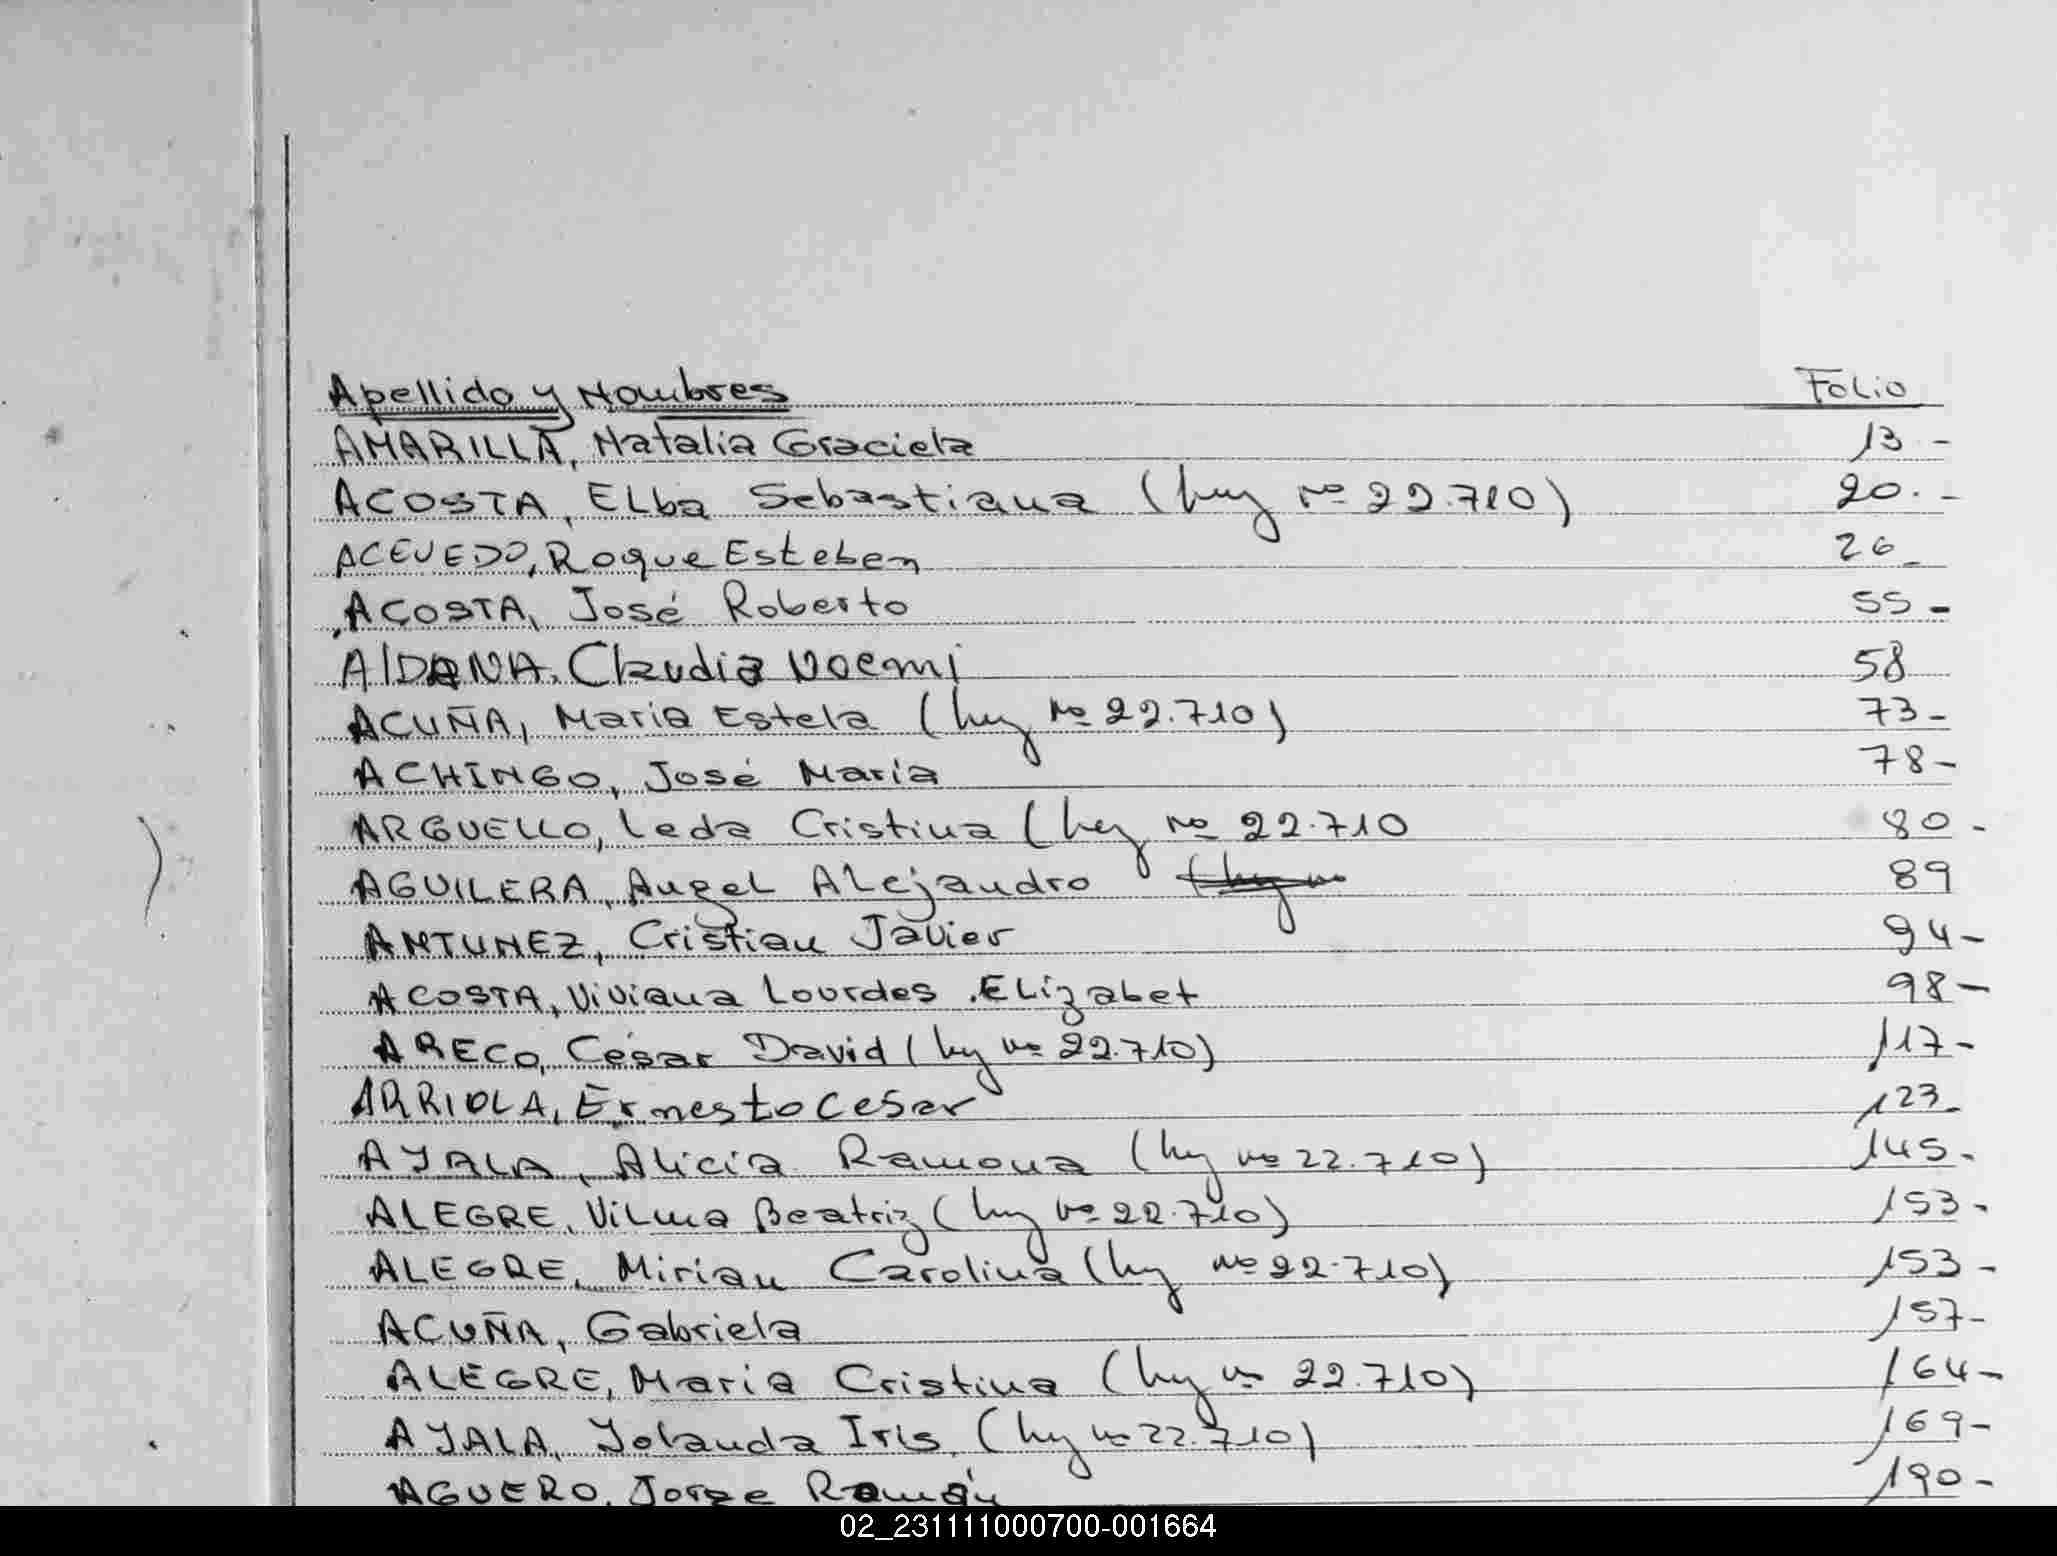 Apellido y Nombres Folio
AMARILLA, Natalia Graciela 13-
ACOSTA, Elba Sebastiana (ley nº 22.710) 20.-
ACEVEDO, Roque Esteben 26_
ACOSTA, José Roberto 55-
AlDANA. Claudia Noemi 58
ACUÑA, Maria Estela (ley nº 22.710) 73-
ACHINGO, José María 78-
ARGUELLO, Leda Cristina (ley nº 22.710 80-
AGUILERA, Angel Alejandro (ley nº 89
ANTUNEZ, Cristian Javier 94-
ACOSTA, Viviana Lourdes Elizabet 98-
ARECO, César David (ley nº 22.710) 117-
ARRIOLA, Ernesto Cesar 123-
AYALA, Alicia Ramona (ley nº 22.710) 145-
ALEGRE, Vilma Beatriz (ley nº 22.710) 153-
ALEGRE, Mirian Carolina (ley nº 22.710) 153-
ACUÑA, Gabriela 157-
ALEGRE, Maria Cristina (ley nº 22.710) 164-
AYALA, Yolanda Iris (ley nº 22.710) 169-
AGUERO, Jorge Ramón 190-
02_231111000700-001664